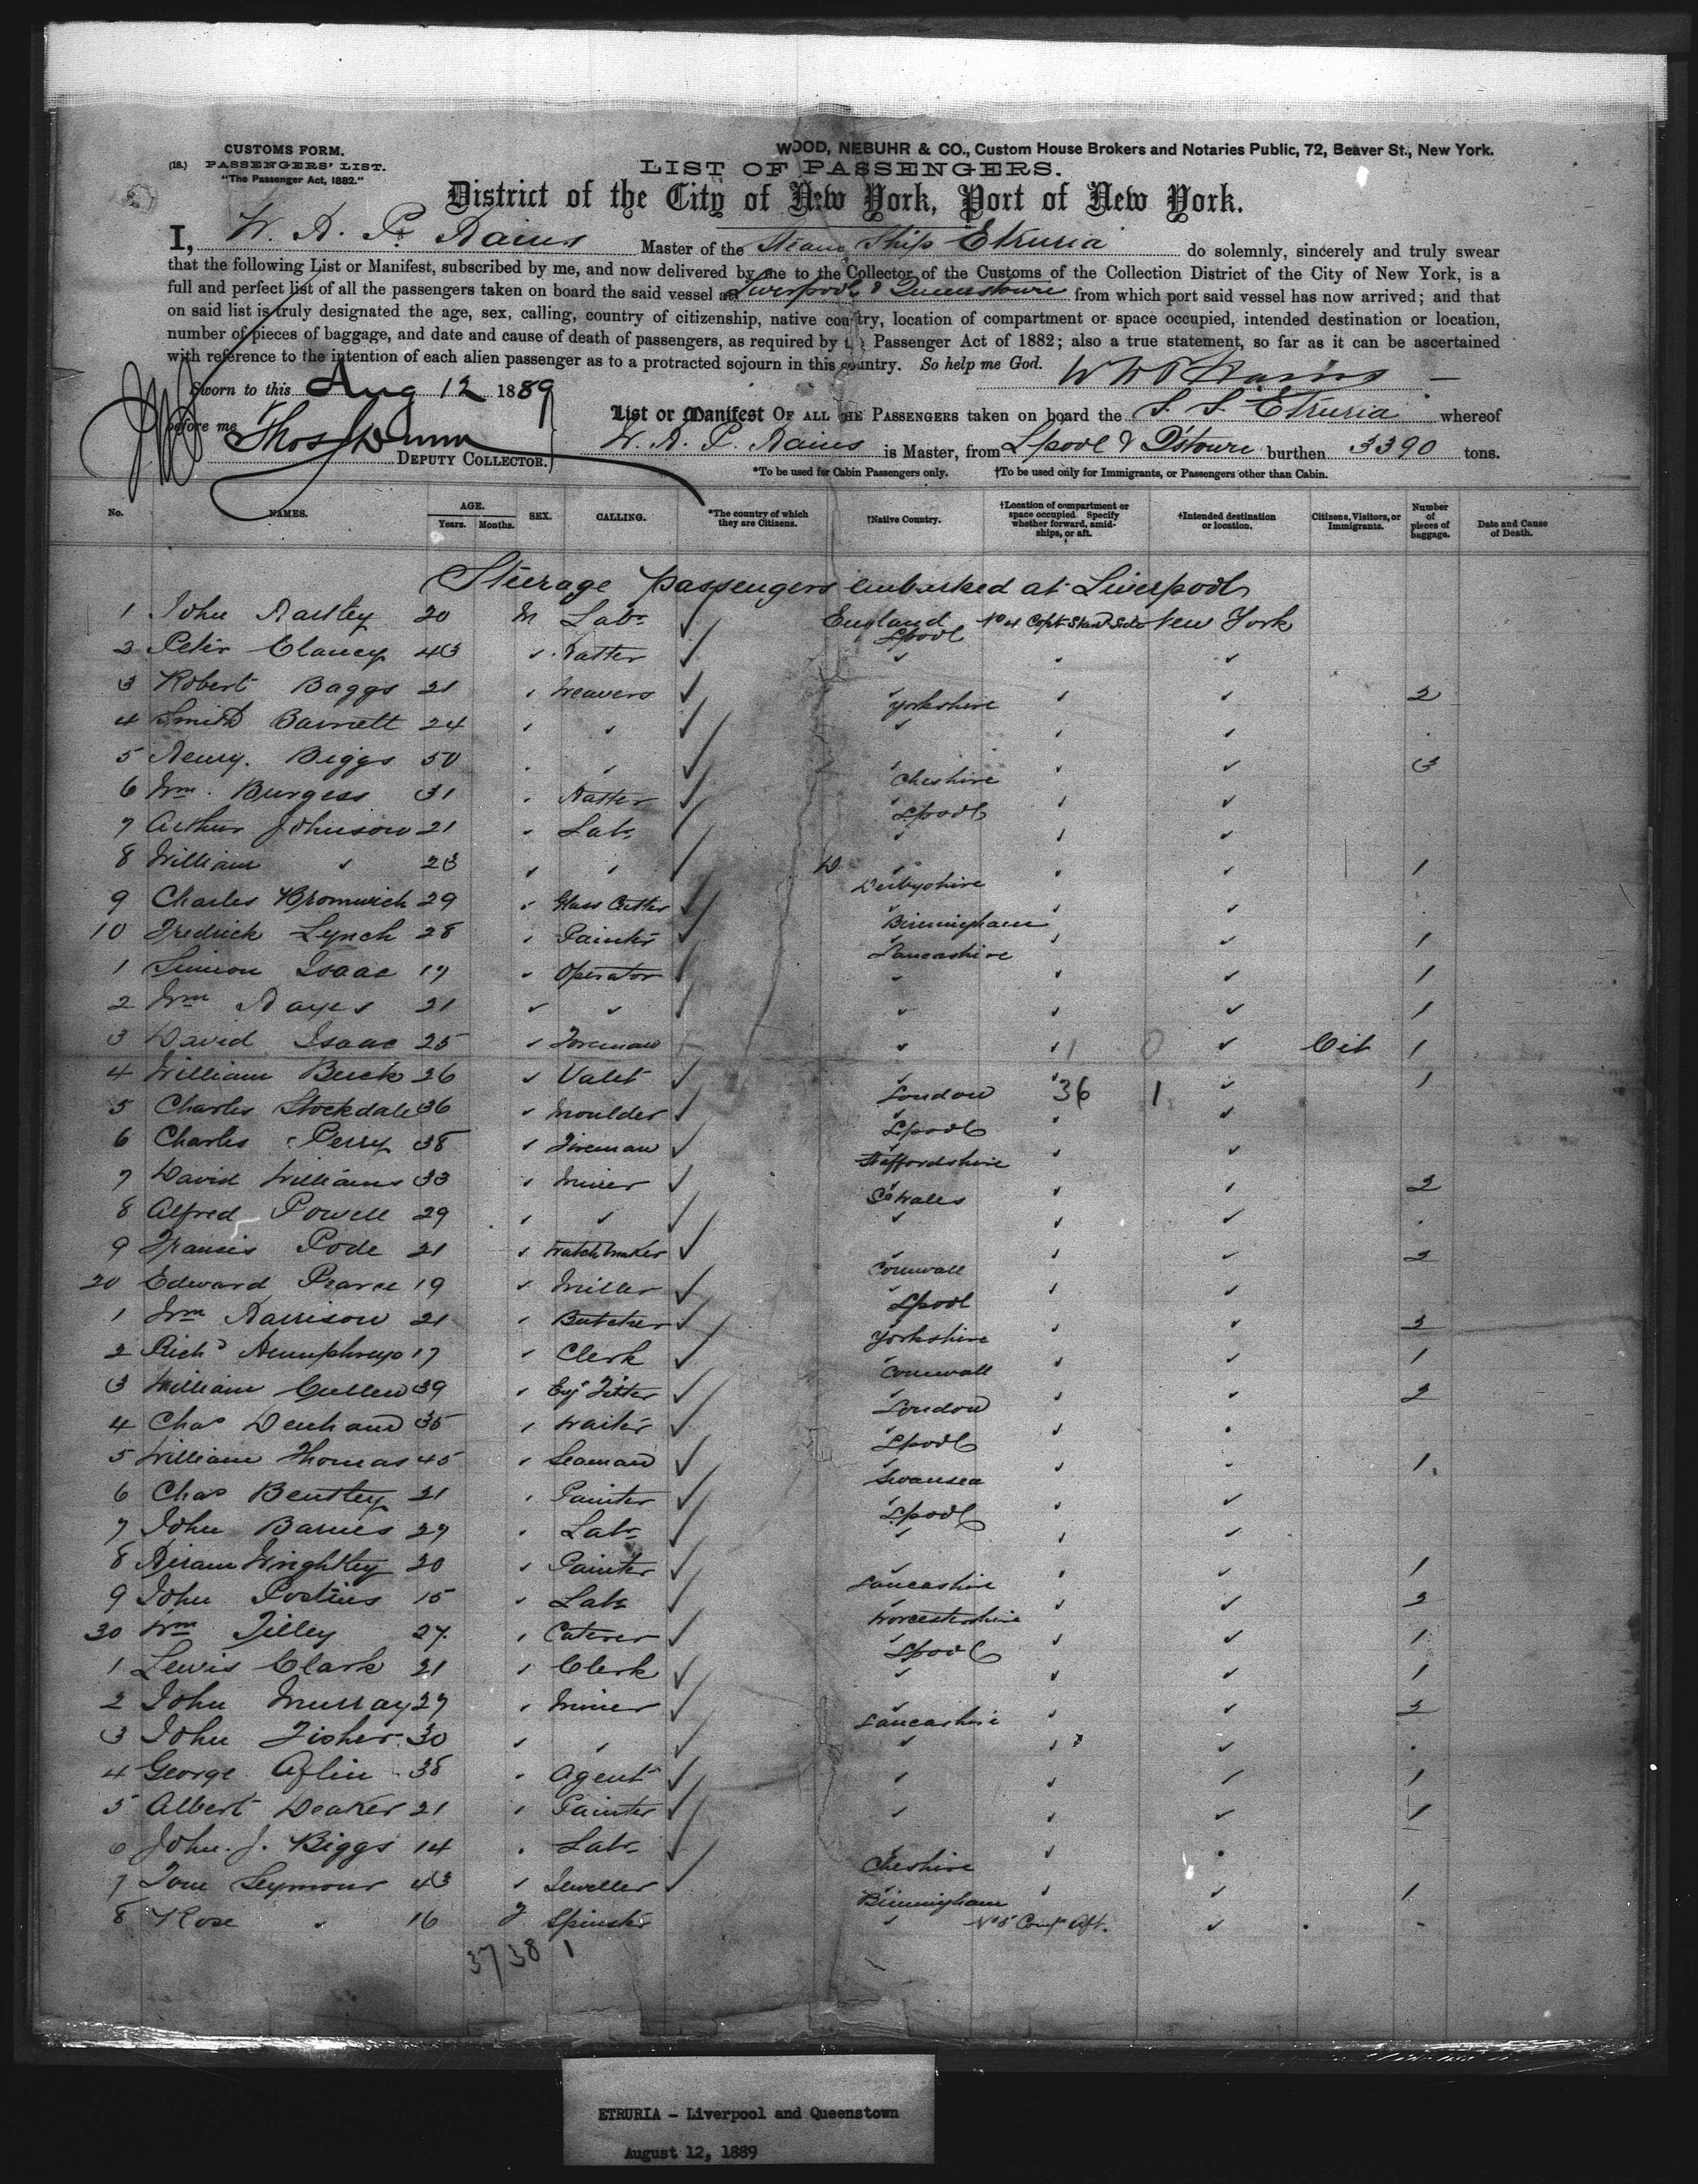 CUSTOMS FORM.
(18.) PASSENGERS' LIST.
"The Passenger Act, 1882."
WOOD, NEBUHR & CO., Custom House Brokers and Notaries Public, 72, Beaver St., New York.
LIST OF PASSENGERS.
District of the City of New York, Port of New York.
I, W. H. P. Hains Master of the Steam Ship Etruria do solemnly, sincerely and truly swear
that the following List or Manifest, subscribed by me, and now delivered by me to the Collector of the Customs of the Collection District of the City of New York, is a
full and perfect list of all the passengers taken on board the said vessel at Liverpool & Queenstown from which port said vessel has now arrived; and that
on said list is truly designated the age, sex, calling, country of citizenship, native country, location of compartment or space occupied, intended destination or location,
number of pieces of baggage, and date and cause of death of passengers, as required by the Passenger Act of 1882; also a true statement, so far as it can be ascertained
with reference to the intention of each alien passenger as to a protracted sojourn in this country. So help me God. W H P Hains
Sworn to this Aug 12 1889
before me Thos Dunn
DEPUTY COLLECTOR.
List or Manifest OF ALL THE PASSENGERS taken on board the S. S. Etruria whereof
W. H. P. Hains is Master, from Lpool & Qstown burthen 3390 tons.
*To be used for Cabin Passengers only. †To be used only for Immigrants, or Passengers other than Cabin.
No. NAMES. AGE. Years. Months. SEX. CALLING. *The country of which they are Citizens. †Native Country. †Location of compartment or space occupied. Specify whether forward, amidships, or aft. †Intended destination or location. Citizens, Visitors, or Immigrants. Number of pieces of baggage. Date and Cause of Death.
Steerage passengers embarked at Liverpool
1 John Hartley 20 M Labr ✓ England Lpool No 4 Compt Starbd Side New York
2 Peter Clancy 43 ✓ Hatter ✓ ✓ ✓ ✓
3 Robert Baggs 21 ✓ Weavers ✓ Yorkshire ✓ ✓ 2
4 Smith Barnett 24 ✓ ✓ ✓ ✓ ✓ ✓
5 Henry Biggs 50 ✓ ✓ ✓ Cheshire ✓ ✓ 3
6 Wm. Burgess 31 ✓ Hatter ✓ Lpool ✓ ✓
7 Arthur Johnson 21 ✓ Labr ✓ ✓ ✓ ✓
8 William ✓ 23 ✓ ✓ ✓ Derbyshire ✓ ✓ 1
9 Charles Bromwich 29 ✓ Glass Cutter ✓ Birmingham ✓ ✓
10 Fredrick Lynch 28 ✓ Painter ✓ Lancashire ✓ ✓ 1
1 Simeon Isaac 19 ✓ Operator ✓ ✓ ✓ ✓ 1
2 Wm Hayes 21 ✓ ✓ ✓ ✓ ✓ ✓ 1
3 David Isaac 25 ✓ Foreman ✓ ✓ 1 0 ✓ Cit 1
4 William Buck 26 ✓ Valet ✓ London 36 1 ✓ 1
5 Charles Stockdale 36 ✓ Moulder ✓ Lpool ✓ ✓
6 Charles Perry 38 ✓ Fireman ✓ Staffordshire ✓ ✓
7 David Williams 33 ✓ Miner ✓ So Wales ✓ ✓ 2
8 Alfred Powell 29 ✓ ✓ ✓ ✓ ✓ ✓
9 Francis Pode 21 ✓ Watchmaker ✓ Cornwall ✓ ✓ 2
20 Edward Pearce 19 ✓ Miller ✓ Lpool ✓ ✓
1 Wm Harrison 21 ✓ Butcher ✓ Yorkshire ✓ ✓ 2
2 Richd Humphreys 17 ✓ Clerk ✓ Cornwall ✓ ✓ 1
3 William Cullen 39 ✓ Eng Fitter ✓ London ✓ ✓ 2
4 Chas Denham 35 ✓ Waiter ✓ Lpool ✓
5 William Thomas 45 ✓ Seaman ✓ Swansea ✓ 1
6 Chas Bentley 21 ✓ Painter ✓ Lpool ✓ ✓
7 John Barnes 29 ✓ Labr ✓ ✓ ✓ ✓
8 Hiram Wrightley 20 ✓ Painter ✓ Lancashire ✓ ✓ 1
9 John Postins 15 ✓ Labr ✓ Worcestershire ✓ ✓ 2
30 Wm Tilley 27 ✓ Caterer ✓ Lpool ✓ ✓ 1
1 Lewis Clark 21 ✓ Clerk ✓ ✓ ✓ ✓ 1
2 John Murray 29 ✓ Miner ✓ Lancashire ✓ ✓ 2
3 John Fisher 30 ✓ ✓ ✓ ✓ ✓ ✓
4 George Aflin 38 ✓ Agent ✓ ✓ ✓ ✓ 1
5 Albert Deaker 21 ✓ Painter ✓ ✓ ✓ ✓ 1
6 John. J. Biggs 14 ✓ Labr ✓ Cheshire ✓
7 Tom Seymour 43 ✓ Jeweller ✓ Birmingham ✓ ✓ 1
8 Rose ✓ 16 F Spinster ✓ No 5 Compt Aft. ✓
37/38 1
ETRURIA - Liverpool and Queenstown
August 12, 1889